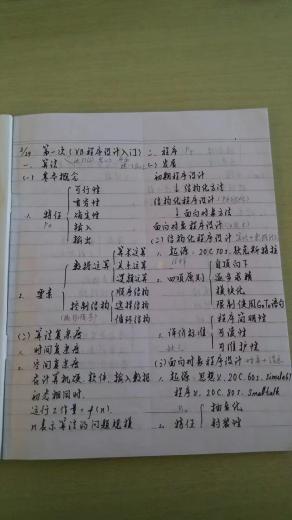 3/29 第一次(VB程序设计入门)
一、算法
(一)基本概念
1. 特征
可行性
有穷性
确定性
输入
输出
2. 要素
数据运算
算术运算
关系运算
逻辑运算
控制结构
顺序结构
选择结构
循环结构
(二)算法复杂度
1. 时间复杂度
2. 空间复杂度
在计算机硬、软件、输入数据
初态相同时
运行工作量=f(n).
n表示算法的问题规模
二、程序
(一)发展
初期程序设计
↓结构化方法
结构化程序设计
↓面向对象方法
面向对象程序设计
(二)结构化程序设计
1. 起源:20C.70s.
2. 四项原则
自顶向下
逐步求精
模块化
限制使用GoTo语句
3. 评价标准
程序简明性
可读性
可维护性
(三)面向对象程序设计
1. 起源:思想X.20C.60s.
程序X.20C.80s. Smalltalk
2. 特征
抽象化
封装性